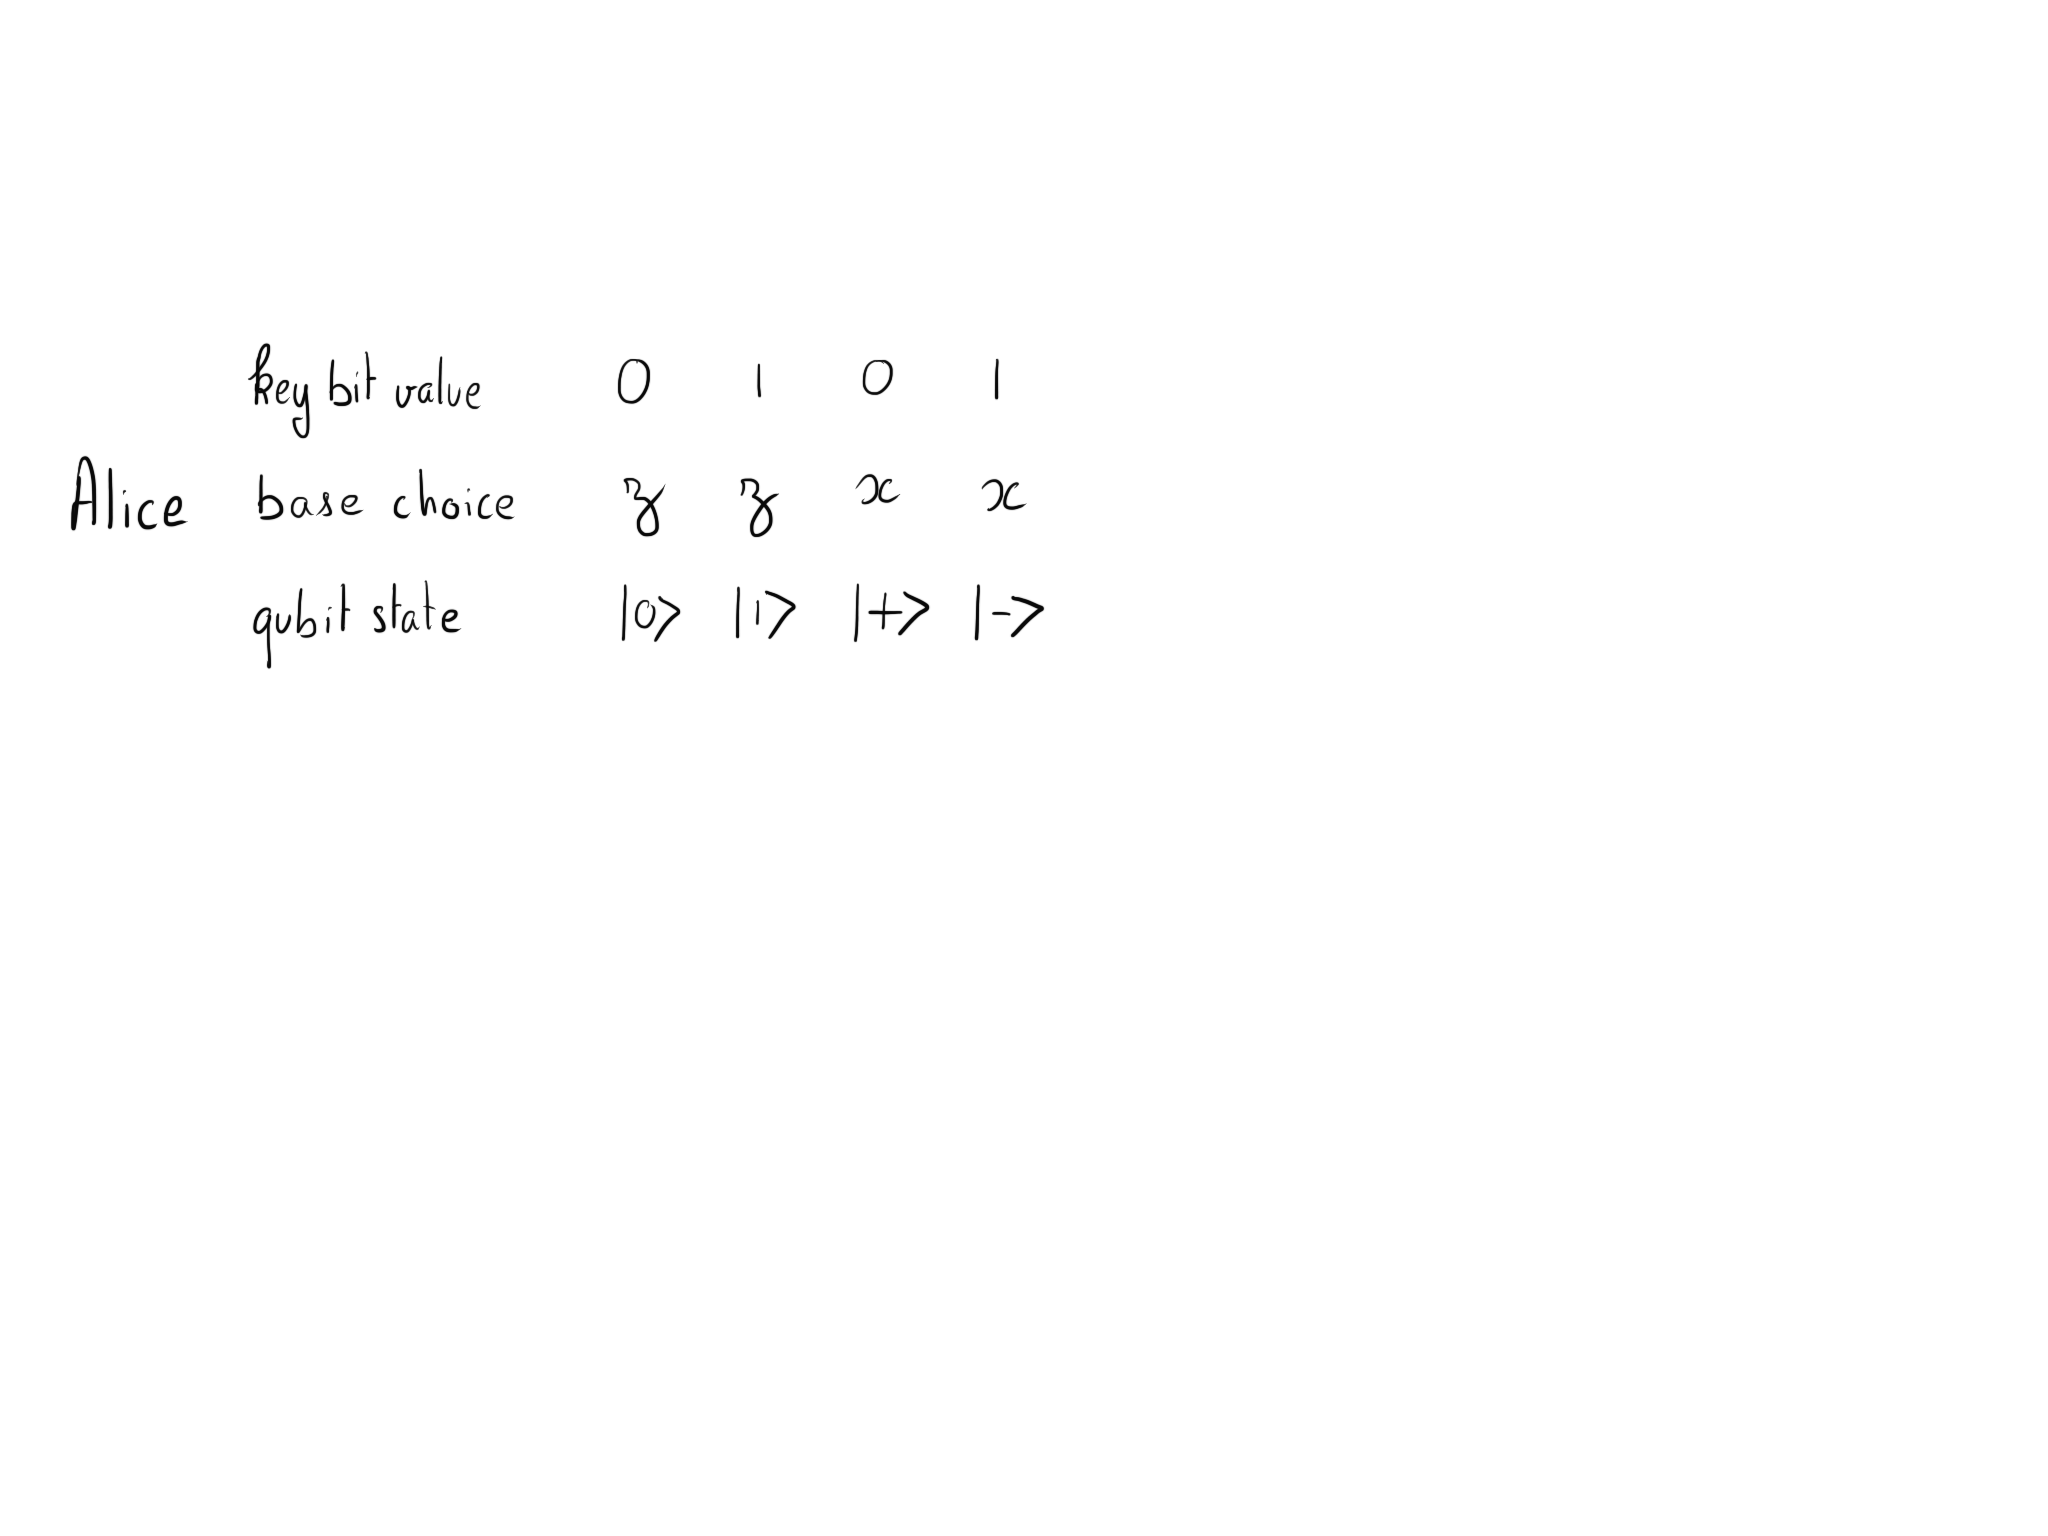 key bit value 0 1 0 1
Alice base choice z z x x
qubit state |0> |1> |+> |->